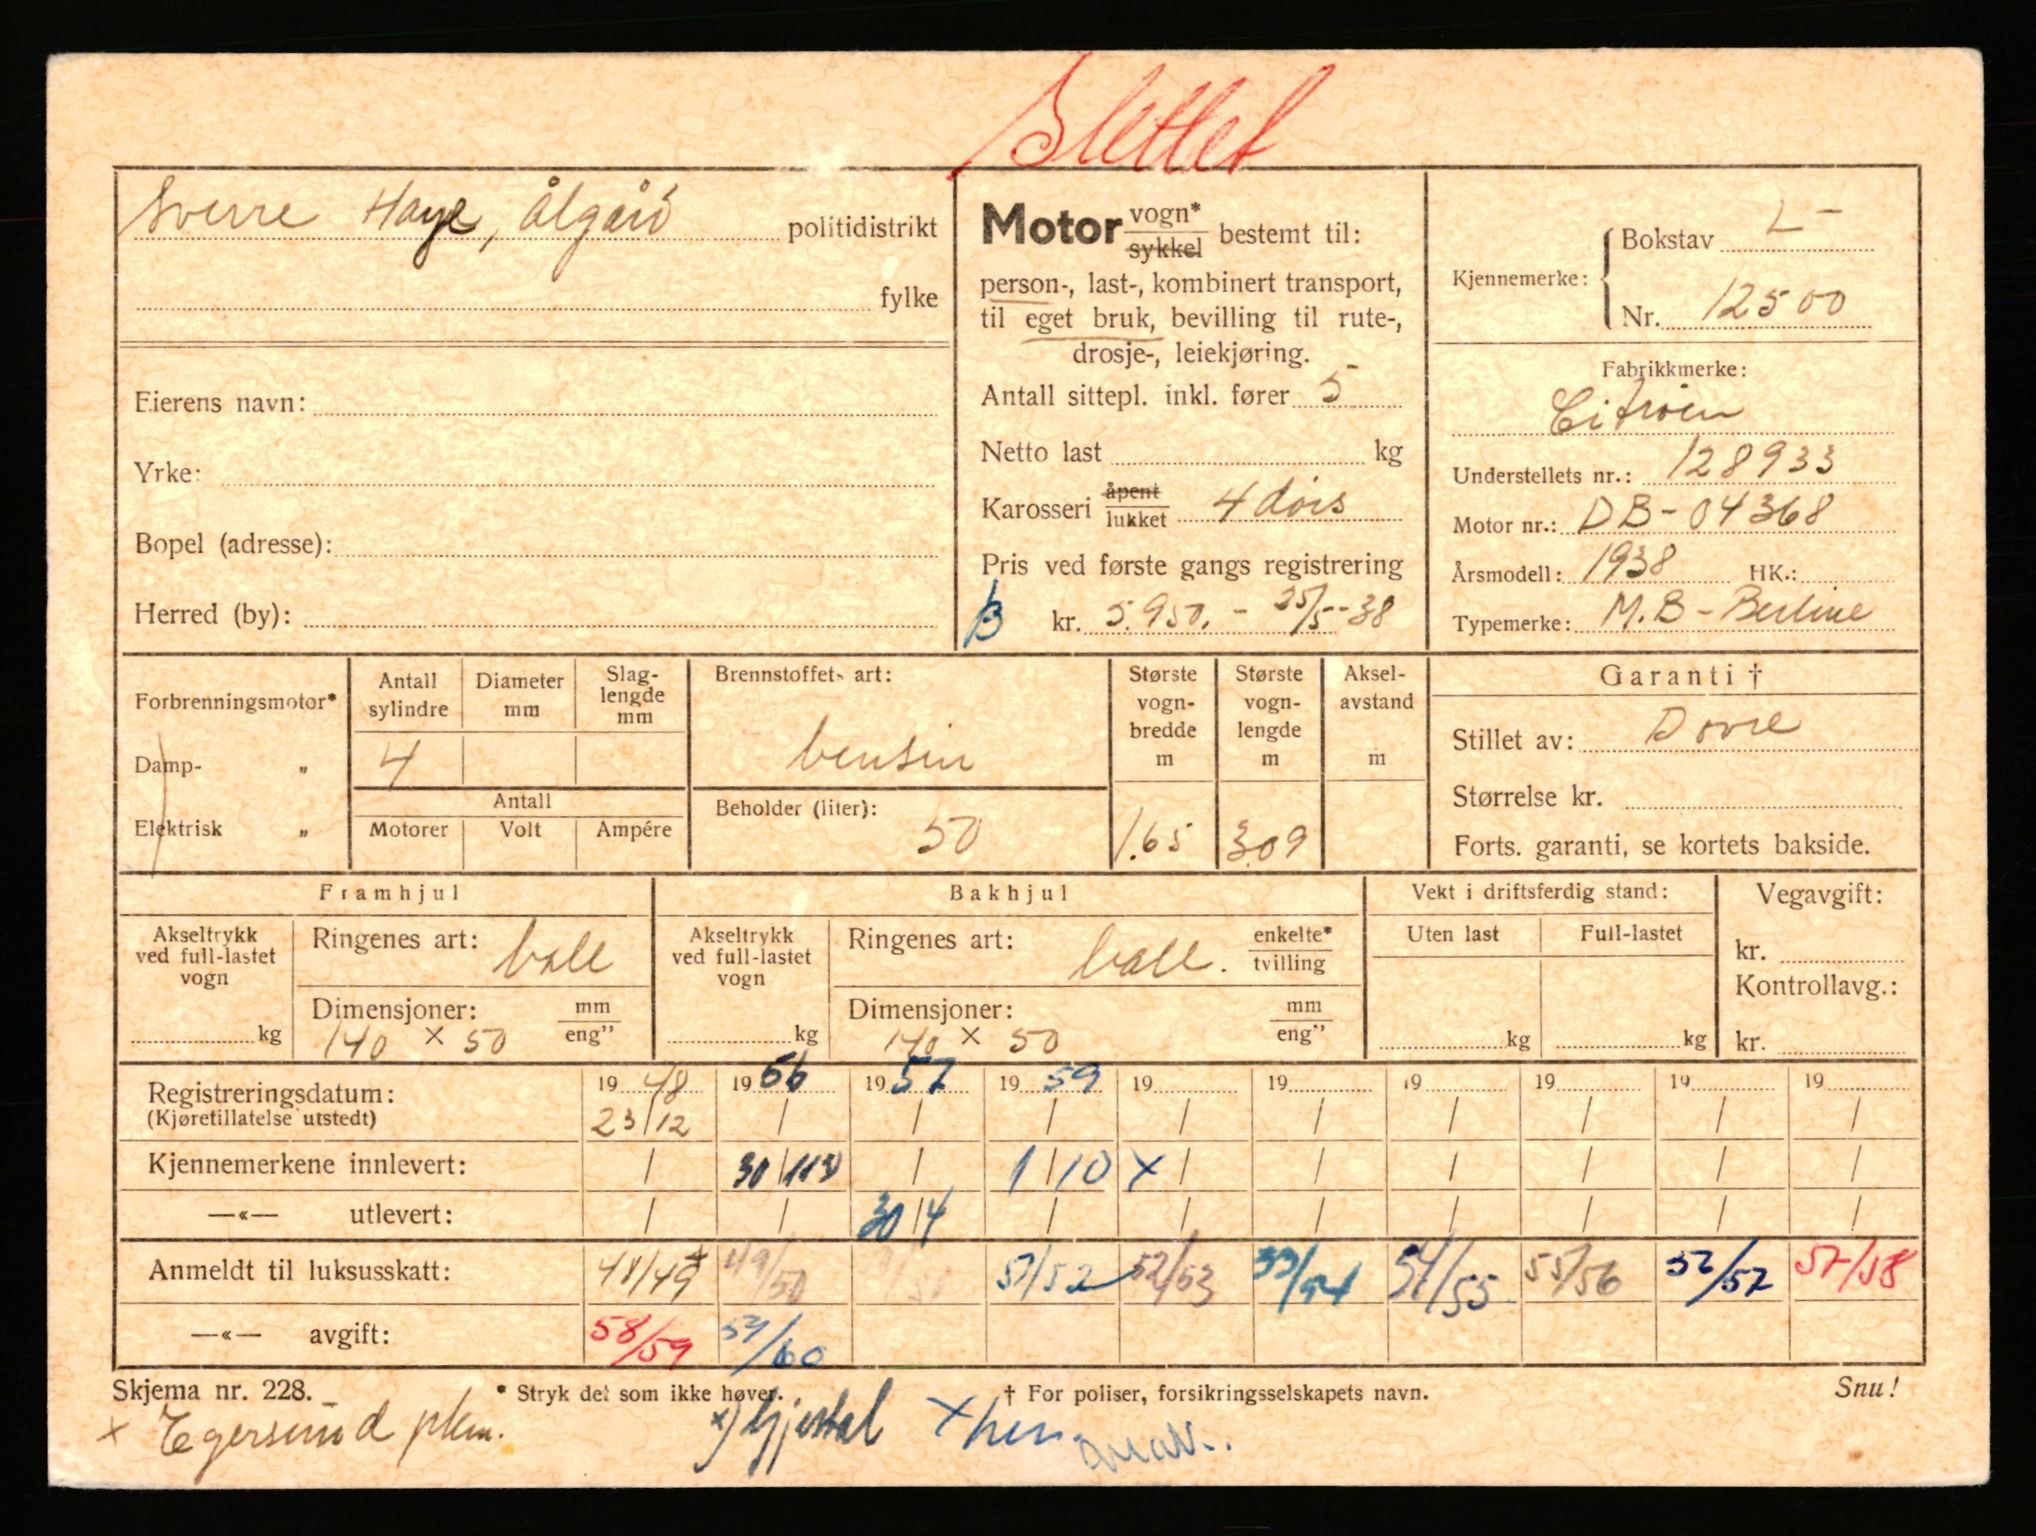 Slettet
Sverre Haye, Ålgård politidistrikt
fylke
Eierens navn:
Yrke:
Bopel (adresse):
Herred (by):
Motor vogn* sykkel bestemt til:
person-, last-, kombinert transport,
til eget bruk, bevilling til rute-,
drosje-, leiekjøring.
Antall sittepl. inkl. fører 5
Netto last kg
Karosseri åpent lukket 4 dørs
Pris ved første gangs registrering
B kr. 5.950.- 25/5-38
Kjennemerke: Bokstav L-
Nr. 12500
Fabrikkmerke:
Citroen
Understellets nr.: 128933
Motor nr.: DB-04368
Årsmodell: 1938 HK.:
Typemerke: M.B-Berline
Forbrenningsmotor*
Damp- "
Elektrisk "
Antall sylindre Diameter mm Slag-lengde mm
4
Antall
Motorer Volt Ampére
Brennstoffets art:
bensin
Beholder (liter):
50
Største vogn-bredde m
1.65
Største vogn-lengde m
3.09
Aksel-avstand m
Garanti †
Stillet av: Dovre
Størrelse kr.
Forts. garanti, se kortets bakside.
Framhjul
Akseltrykk ved full-lastet vogn kg
Ringenes art: ball
Dimensjoner: mm eng"
140 × 50
Bakhjul
Akseltrykk ved full-lastet vogn kg
Ringenes art: ball. enkelte* tvilling
Dimensjoner: mm eng"
140 × 50
Vekt i driftsferdig stand:
Uten last Full-lastet
kg kg
Vegavgift:
kr.
Kontrollavg.:
kr.
Registreringsdatum: 1948 1956 1957 1959 19 19 19 19 19 19
(Kjøretillatelse utstedt) 23/12 / / / / / / / / /
Kjennemerkene innlevert: / 30/11 / 1/10 × / / / / / /
—«— utlevert: / / 30/4 / / / / / / /
Anmeldt til luksusskatt: 48/49 49/50 51/52 52/53 53/54 54/55 55/56 56/57 57/58
—«— avgift: 58/59 59/60
Skjema nr. 228. * Stryk det som ikke høver. † For poliser, forsikringsselskapets navn. Snu!
× Egersund ×) Gjestal ×